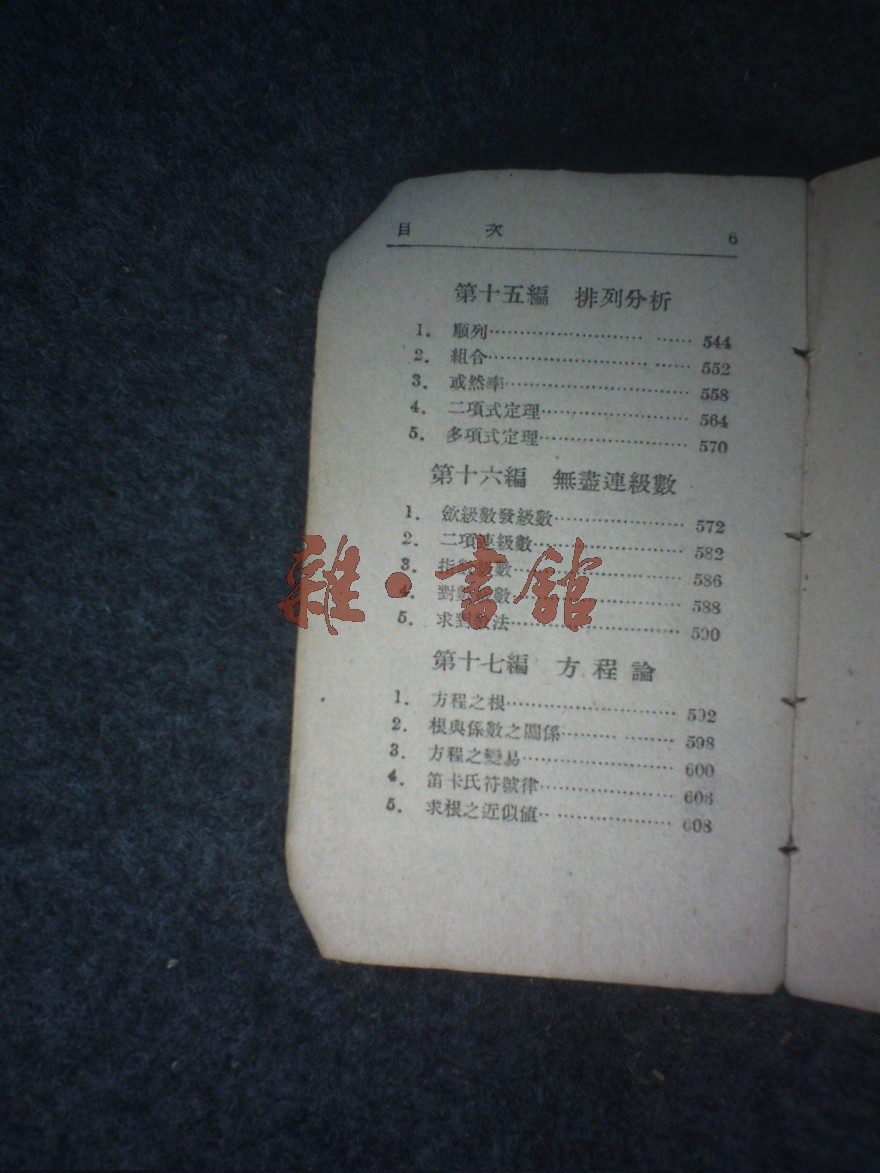 目 次 6
第十五編 排列分析
1. 順列 544
2. 組合 552
3. 或然率 558
4. 二項式定理 564
5. 多項式定理 570
第十六編 無盡連級數
1. 斂級數發級數 572
2. 二項連級數 582
3. 指數級數 586
4. 對數級數 588
5. 求對數法 590
雜·書館
第十七編 方程論
1. 方程之根 592
2. 根與係數之關係 598
3. 方程之變易 600
4. 笛卡氏符號律
5. 求根之近似値 608